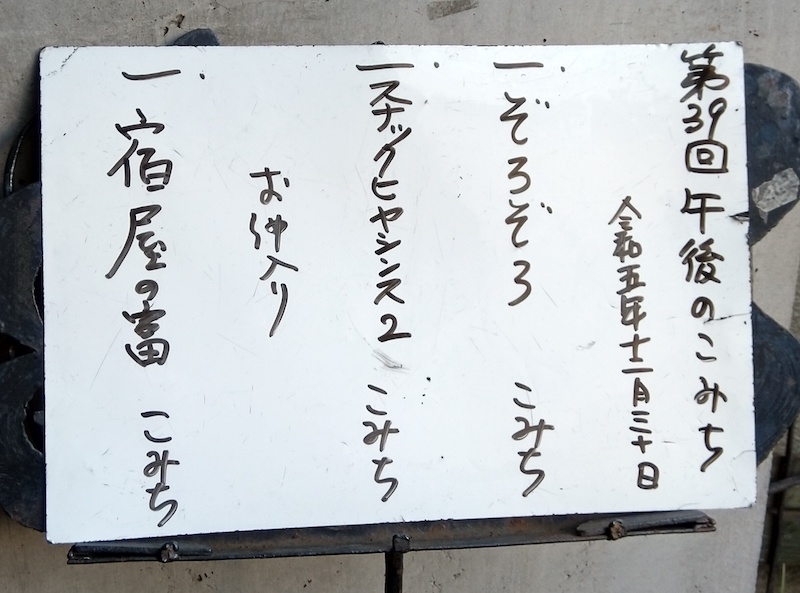 第39回 午後のこみち
令和五年十一月三十日
一. ぞろぞろ こみち
一. スナックヒヤシンス2 こみち
お仲入り
一. 宿屋の富 こみち